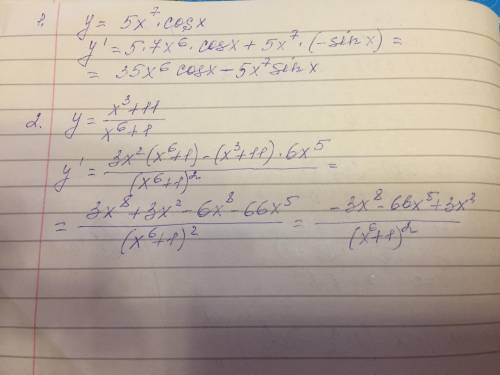 1. y = 5x⁷ · cosx
y' = 5·7x⁶ · cosx + 5x⁷ · (-sinx) =
= 35x⁶ cosx - 5x⁷ sinx
2. y = (x³+11)/(x⁶+1)
y' = (3x²(x⁶+1) - (x³+11)·6x⁵)/(x⁶+1)² =
= (3x⁸+3x²-6x⁸-66x⁵)/(x⁶+1)² = (-3x⁸-66x⁵+3x²)/(x⁶+1)²